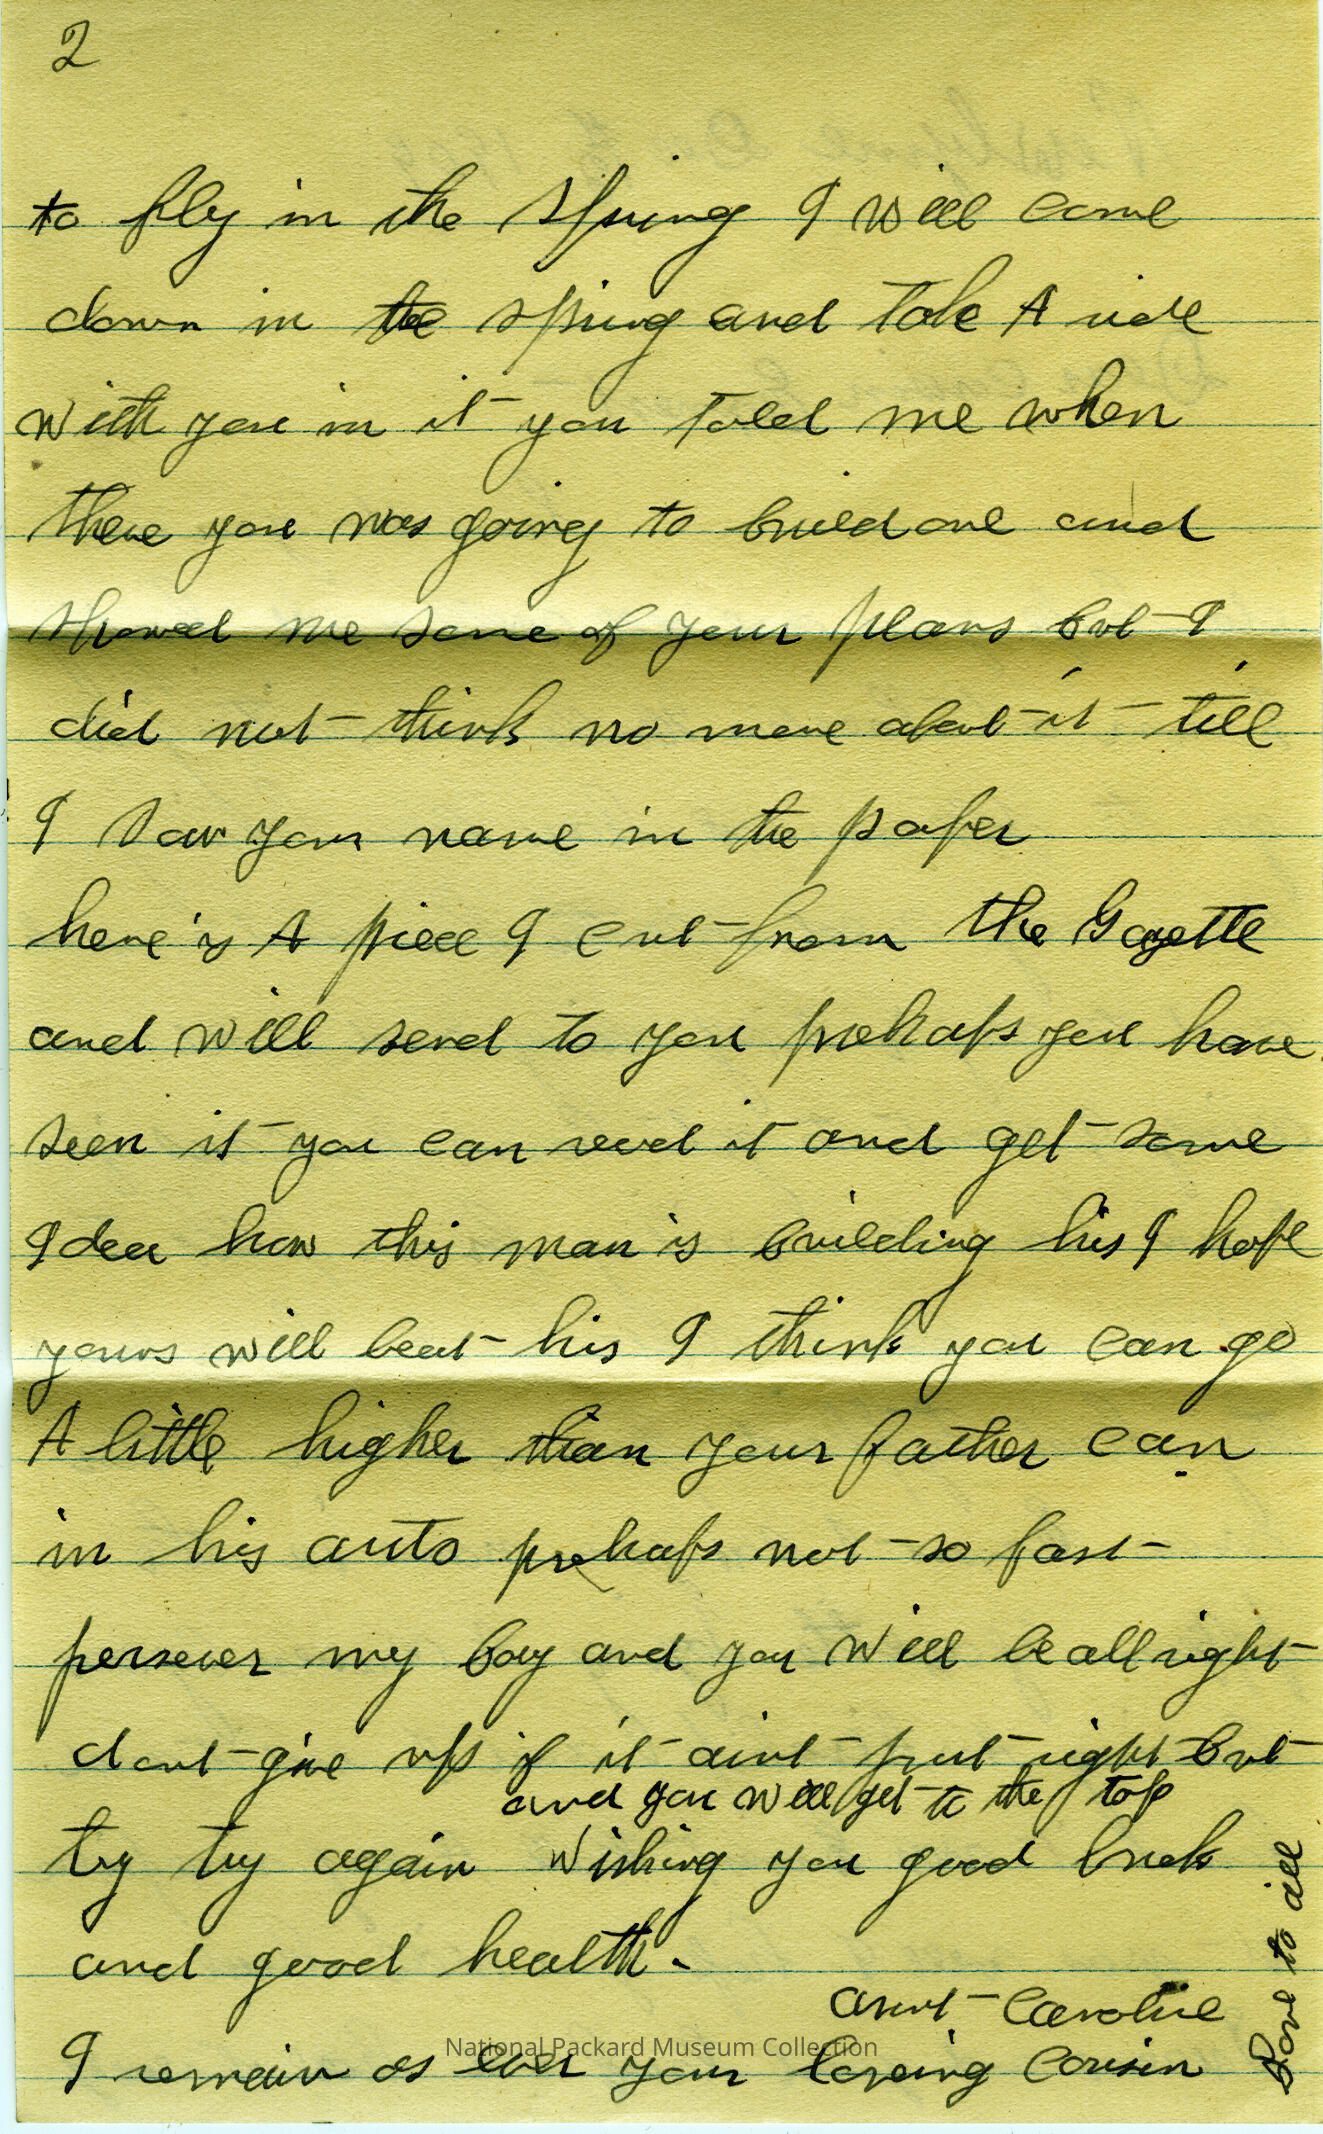 2
to fly in the spring I will come
down in the spring and take A ride
with you in it you told me when
there you was going to build one and
showed me some of your plans but I
did not think no more about it till
I saw your name in the paper
here is A piece I cut from the Gazette
and will send to you prehaps you have
seen it you can read it and get some
Idea how this man is building his I hope
yours will beat his I think you can go
A little higher than your father can
in his auto prehaps not so fast
persever my boy and you will be all right
dont give up if it aint just right but
and you will get to the top
try try again Wishing you good luck
and good health.
aunt Caroline
I remain as ever your loveing cousin
Love to all
National Packard Museum Collection